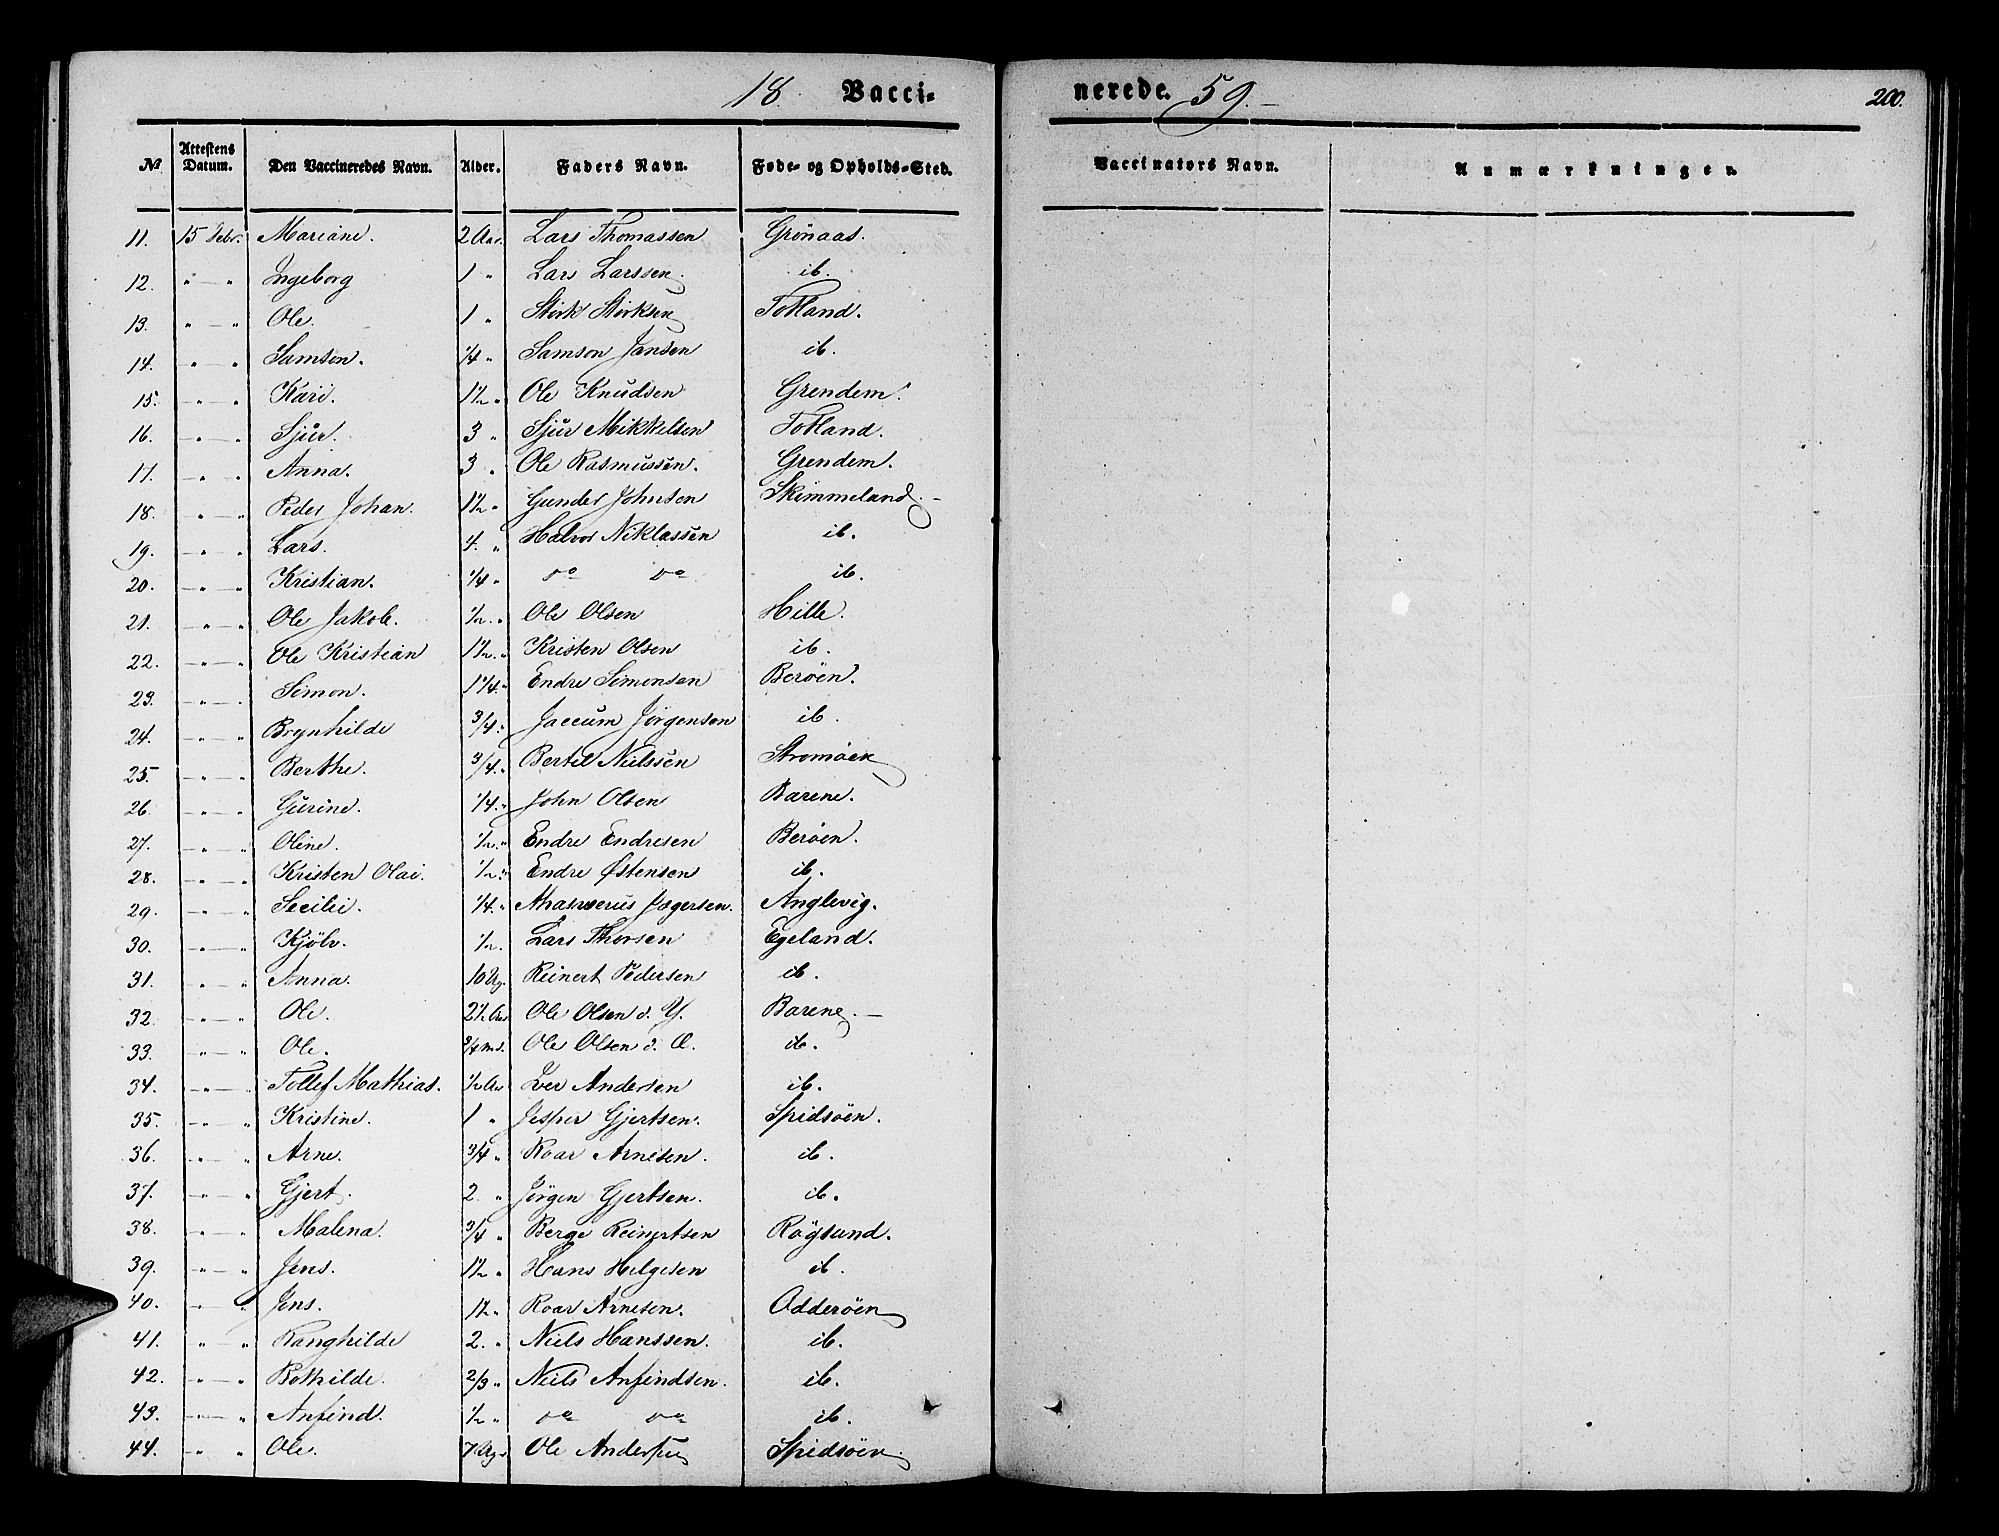 18 Vacci- nerede. 59. 200.
No. Attestens Datum. Den Vaccineredes Navn. Alder. Faders Navn. Føde- og Opholds-Sted. Vaccinators Navn. Anmærkninger.
11. 15 Febr. Mariane. 2 Aar. Lars Thomassen Grönaas.
12. " — " Ingeborg 1 " Lars Larssen. ib.
13. " — " Ole. 1 " Störk Störksen Tofland.
14. " — " Samson. 1/4 " Samson Jansen ib.
15. " — " Kari. 1 1/2 " Ole Knudsen Grendem.
16. " — " Sjur. 3 " Sjur Mikkelsen Tofland.
17. " — " Anna. 3 " Ole Rasmussen. Grendem.
18. " — " Peder Johan. 1 1/2 " Gunder Johnsen Skimmeland. —
19. " — " Lars. 4. " Halvor Niklassen ib.
20. " — " Kristian. 1/4 " do do ib.
21. " — " Ole Jakob. 1/2 " Ole Olsen Hille.
22. " — " Ole Kristian 1 1/2 " Kristen Olsen ib.
23. " — " Simon. 1 1/4 " Endre Simonsen Beröen.
24. " — " Brynhilde 3/4 " Jaccum Jörgensen ib.
25. " — " Berthe. 3/4 " Bertel Nielssen Stromöen
26. " — " Gurine. 1/4 " John Olsen Barene.
27. " — " Oline. 1/2 " Endre Endresen Beröen.
28. " — " Kristen Olai. 1/2 " Endre Østensen ib.
29. " — " Secilie. 1/4 " Ahasverus Jægersen. Anglevig.
30. " — " Kjölv. 1/2. Lars Thorsen Egeland.
31. " — " Anna. 10 Ug. Reinert Pedersen ib.
32. " — " Ole. 2 1/2 Aar Ole Olsen d. Y. Barene. —
33. " — " Ole. Ole Olsen d. Æ. ib.
34. " — " Tollef Mathias. 1/2 Aar Iver Andersen ib.
35. " — " Kristine. 1 " Jesper Gjertsen. Spidsöen.
36. " — " Arne. 3/4 " Roar Arnesen. ib.
37. " — " Gjert. 2. " Jörgen Gjertsen. ib.
38. " — " Malena. 3/4 " Berge Reinertsen Rögsund.
39. " — " Jens. 1 1/2 " Hans Helgesen ib.
40. " — " Jens. 1 1/2 " Roar Arnesen. Odderöen
41. " — " Ranghilde 2. " Niels Hanssen. ib.
42. " — " Bothilde. 2/3 " Niels Anfindsen. ib.
43. " — " Anfind. 1/2 " do do ib.
44. " — " Ole. 7 Ug. Ole Andersen Spidsöen.